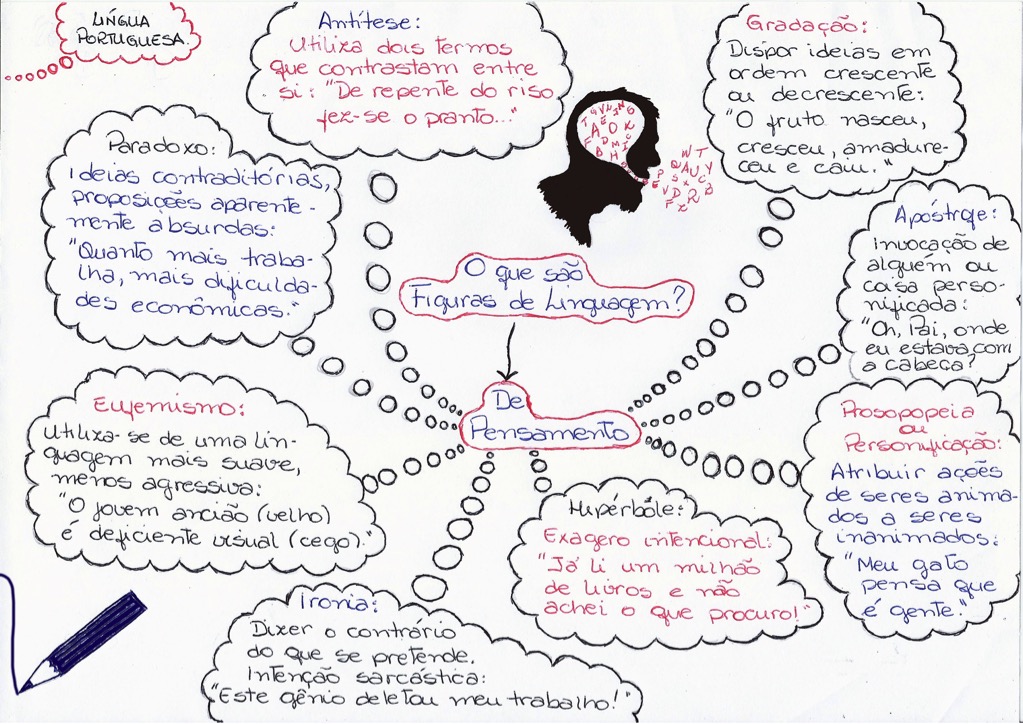 LÍNGUA
PORTUGUESA.
Antítese:
Utiliza dois termos
que contrastam entre
si: "De repente do riso
fez-se o pranto..."
Gradação:
Dispor ideias em
ordem crescente
ou decrescente:
"O fruto nasceu,
cresceu, amadure-
ceu e caiu."
Paradoxo:
Ideias contraditórias,
proposições aparente-
mente absurdas:
"Quanto mais traba-
lha, mais dificulda-
des econômicas."
O que são
Figuras de Linguagem?
Apóstrofe:
Invocação de
alguém ou
coisa perso-
nificada:
"Oh, Pai, onde
eu estava com
a cabeça?
De
Pensamento
Eufemismo:
Utiliza-se de uma lin-
guagem mais suave,
menos agressiva:
"O jovem ancião (velho)
é deficiente visual (cego)."
Prosopopeia
ou
Personificação:
Atribuir ações
de seres anima-
dos a seres
inanimados:
"Meu gato
pensa que
é gente."
Hipérbole:
Exagero intencional:
"Já li um milhão
de livros e não
achei o que procuro!"
Ironia:
Dizer o contrário
do que se pretende.
Intenção sarcástica:
"Este gênio deletou meu trabalho!"